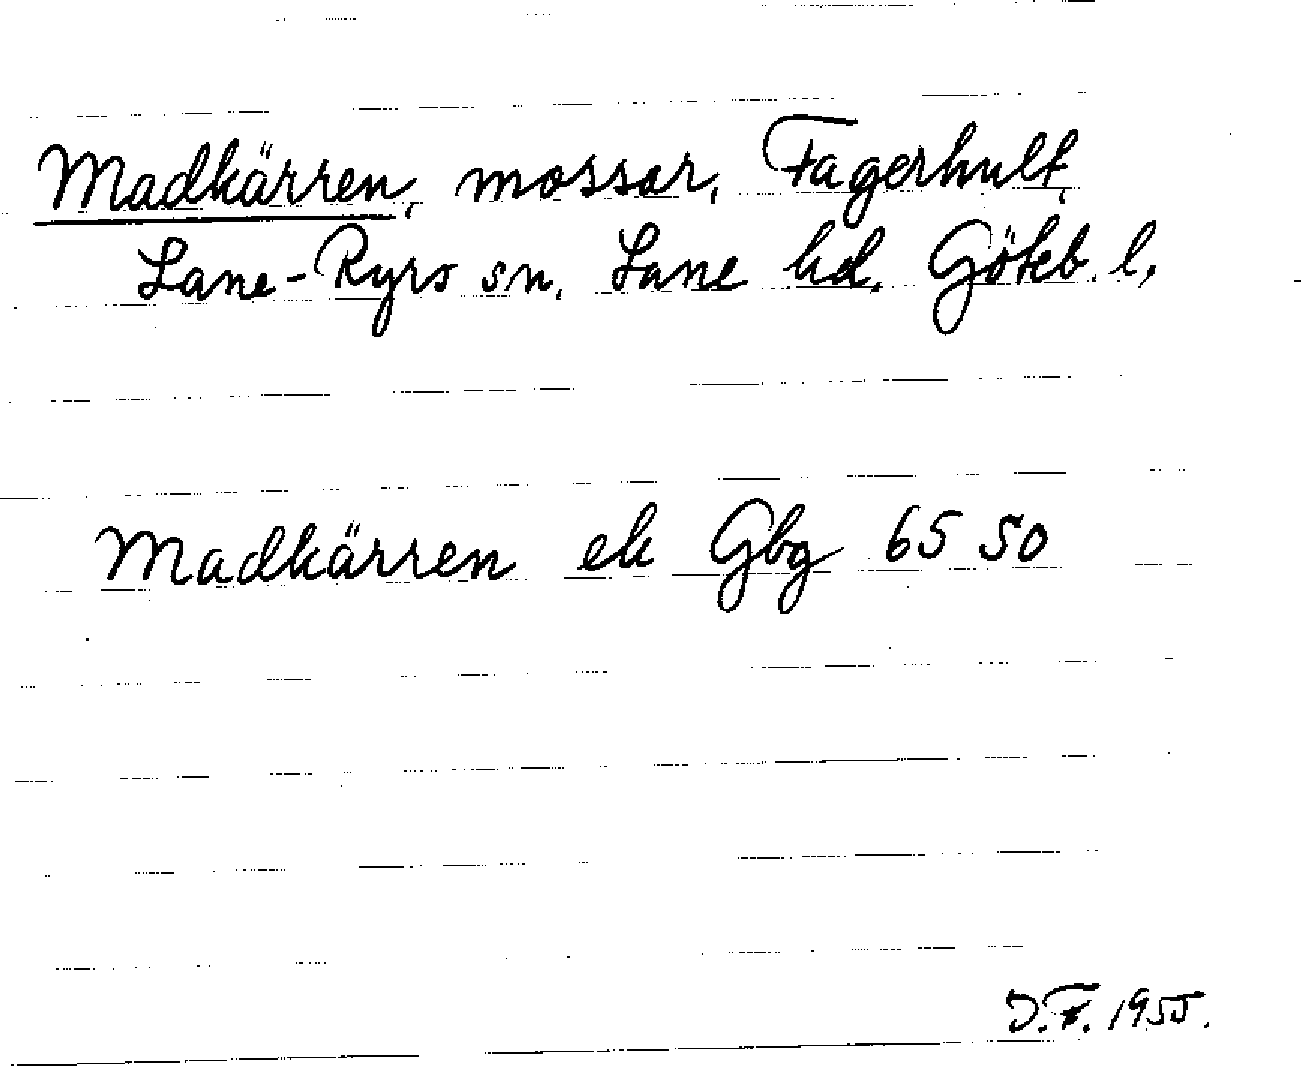 Madkärren, mossar, Fagerhult,
Lane-Ryrs sn, Lane hd, Göteb. l,
Madkärren ek Gbg 65 50
D.F. 1955.